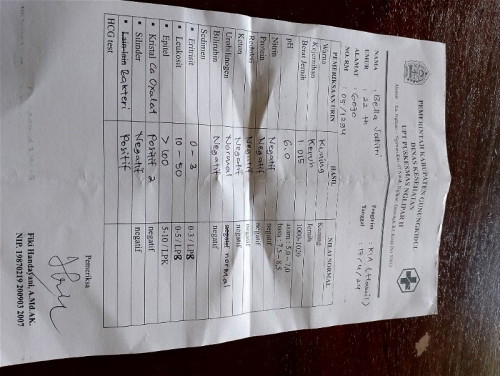 PEMERINTAH KABUPATEN GUNUNGKIDUL
DINAS KESEHATAN
UPT PUSKESMAS NGLIPAR II
NAMA : Bella Jatiri
UMUR : 22 th
ALAMAT : 6030
NO. RM : 05/1284
Pengirim : KIA (Hamil)
Tanggal : 17/4/24
PEMERIKSAAN URIN HASIL NILAI NORMAL
Warna Kuning Kuning
Kejernihan Keruh Jernih
Berat Jenis 1.015 1000-1020
pH 6.0 asam : 5,0 – 7,0
basa : 7,5 – 8,5
Nitrit Negatif negatif
Protein Negatif negatif
Reduksi Negatif negatif
Keton Negatif negatif
Urobilinogen Normal negatif normal
Bilirubin Negatif negatif
Sedimen
• Eritrosit 0 – 3 0-3 / LPB
• Leukosit 10 – 50 0-5 / LPB
• Epitel > 100 5-10 / LPK
• Kristal Ca Oxalat Positif 2 negatif
• Silinder Negatif negatif
• Lain-lain Bakteri Positif negatif
HCG test Positif
Pemeriksa
Fiki Handayani, A.Md.AK.
NIP. 19870219 200903 2007